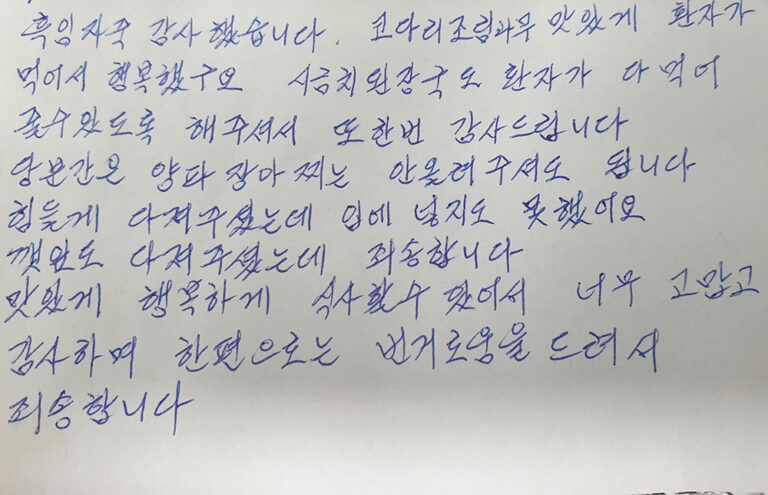 흑임자죽 감사했습니다. 코다리조림과무 맛있게 환자가
먹어서 행복했구요 시금치된장국도 환자가 다 먹어
줄수있도록 해주셔서 또한번 감사드립니다
당분간은 양파 장아찌는 안올려주셔도 됩니다
힘들게 다져주셨는데 입에 넣지도 못했어요
깻잎도 다져주셨는데 죄송합니다
맛있게 행복하게 식사할수 있어서 너무 고맙고
감사하며 한편으로는 번거로움을 드려서
죄송합니다